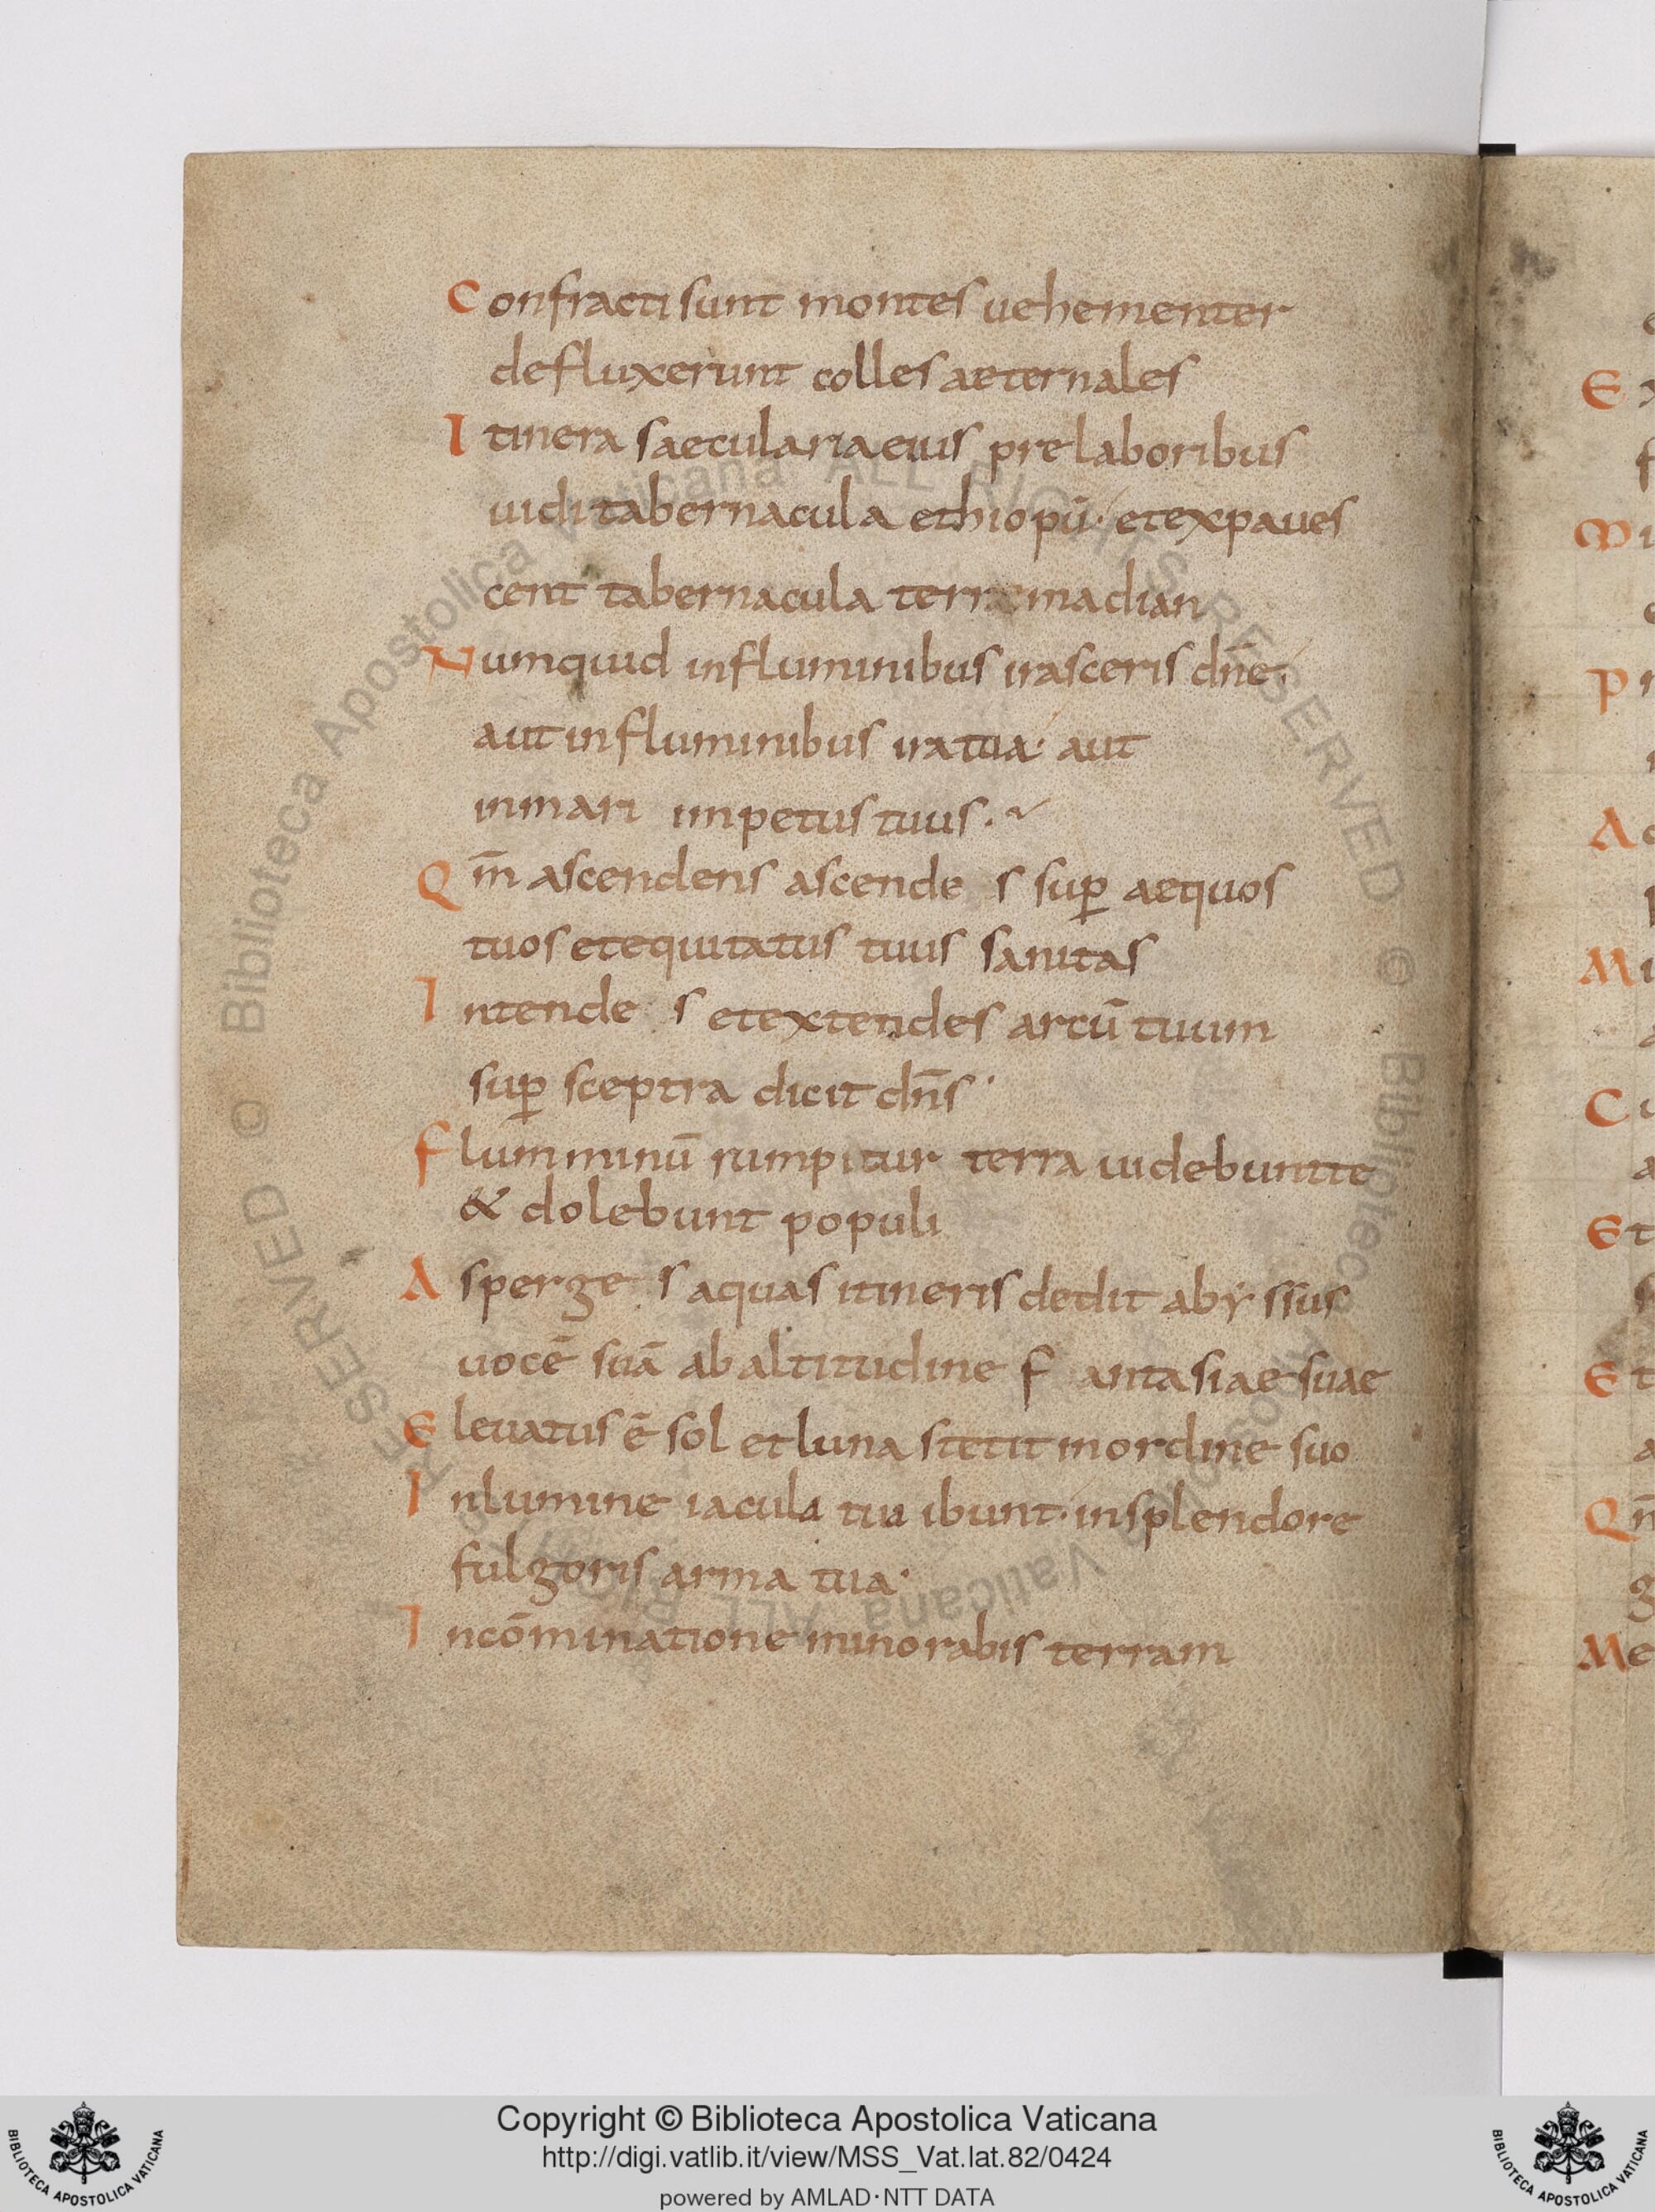 Confracti sunt montes uehementer
defluxerunt colles aeternales
Itinera saecularia eius pre laboribus
uidi tabernacula ethiopū· et expaues
cent tabernacula terre madian
Numquid in fluminibus irasceris dn̄e·
aut in fluminibus ira tua· aut
in mari impetus tuus·
Qm̄ ascendens ascende s sup̄ aequos
tuos et equitatus tuus sanitas
Intende s et extendes arcū tuum
sup̄ sceptra dicit dn̄s·
Flum minū rumpitur terra uidebunt te
& dolebunt populi
Asperge s aquas itineris dedit abẏssus
uocē suā ab altitudine f antasiae suae
Eleuatus ē sol et luna stetit in ordine suo
In lumine iacula tua ibunt· in splendore
fulgoris arma tua·
In cōminatione minorabis terram
Biblioteca Apostolica Vaticana ALL RIGHTS RESERVED ©
Copyright © Biblioteca Apostolica Vaticana
http://digi.vatlib.it/view/MSS_Vat.lat.82/0424
powered by AMLAD·NTT DATA
BIBLIOTECA APOSTOLICA VATICANA
BIBLIOTECA APOSTOLICA VATICANA